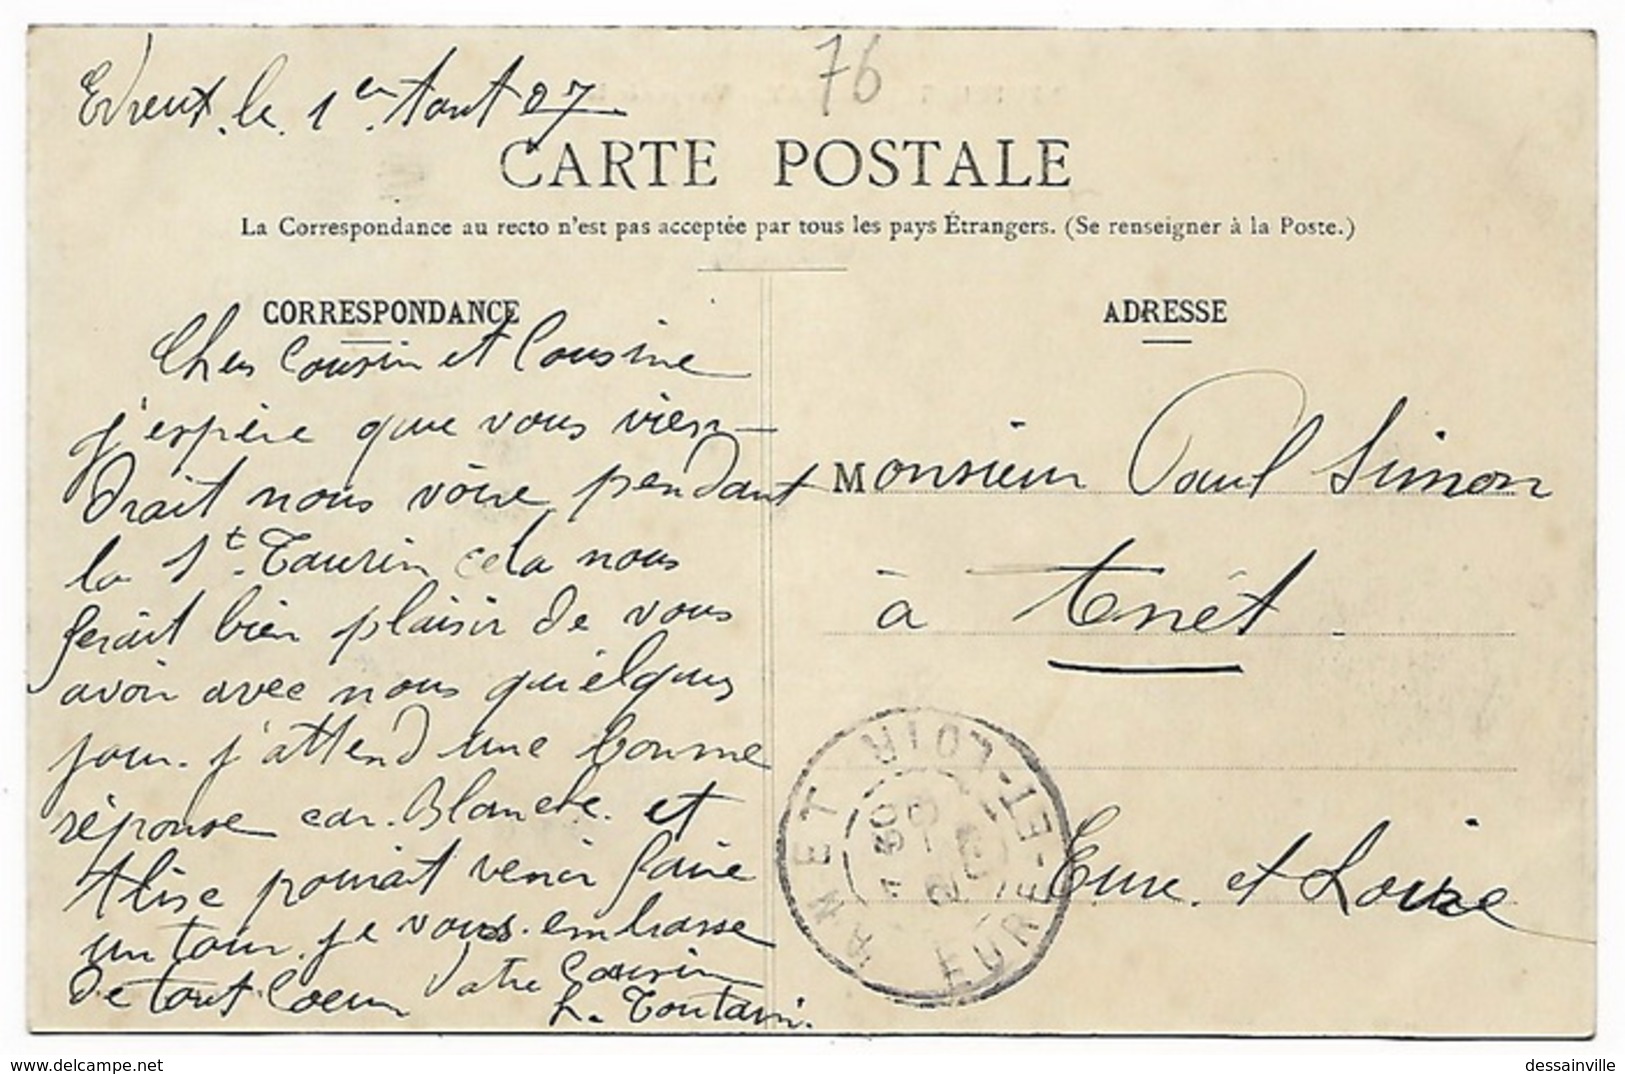 Evreux. le. 1er. Aout 07
76
CARTE POSTALE
La Correspondance au recto n'est pas acceptée par tous les pays Étrangers. (Se renseigner à la Poste.)
CORRESPONDANCE
Chers Cousin et Cousine
j'espère que vous vien-
drait nous voire pendant
la St. Taurin cela nous
ferait bien plaisir de vous
avoir avec nous quelques
jour. j'attend une bonne
réponse car. Blanche. et
Alise pourait venir faire
un tour. je vous. embrasse
de tout Coeur Votre Cousin
L. Toutain.
ADRESSE
Monsieur Paul Simon
à Anet.
Eure. et Loire
ANET
EURE-ET-LOIR
7 30
dessainville